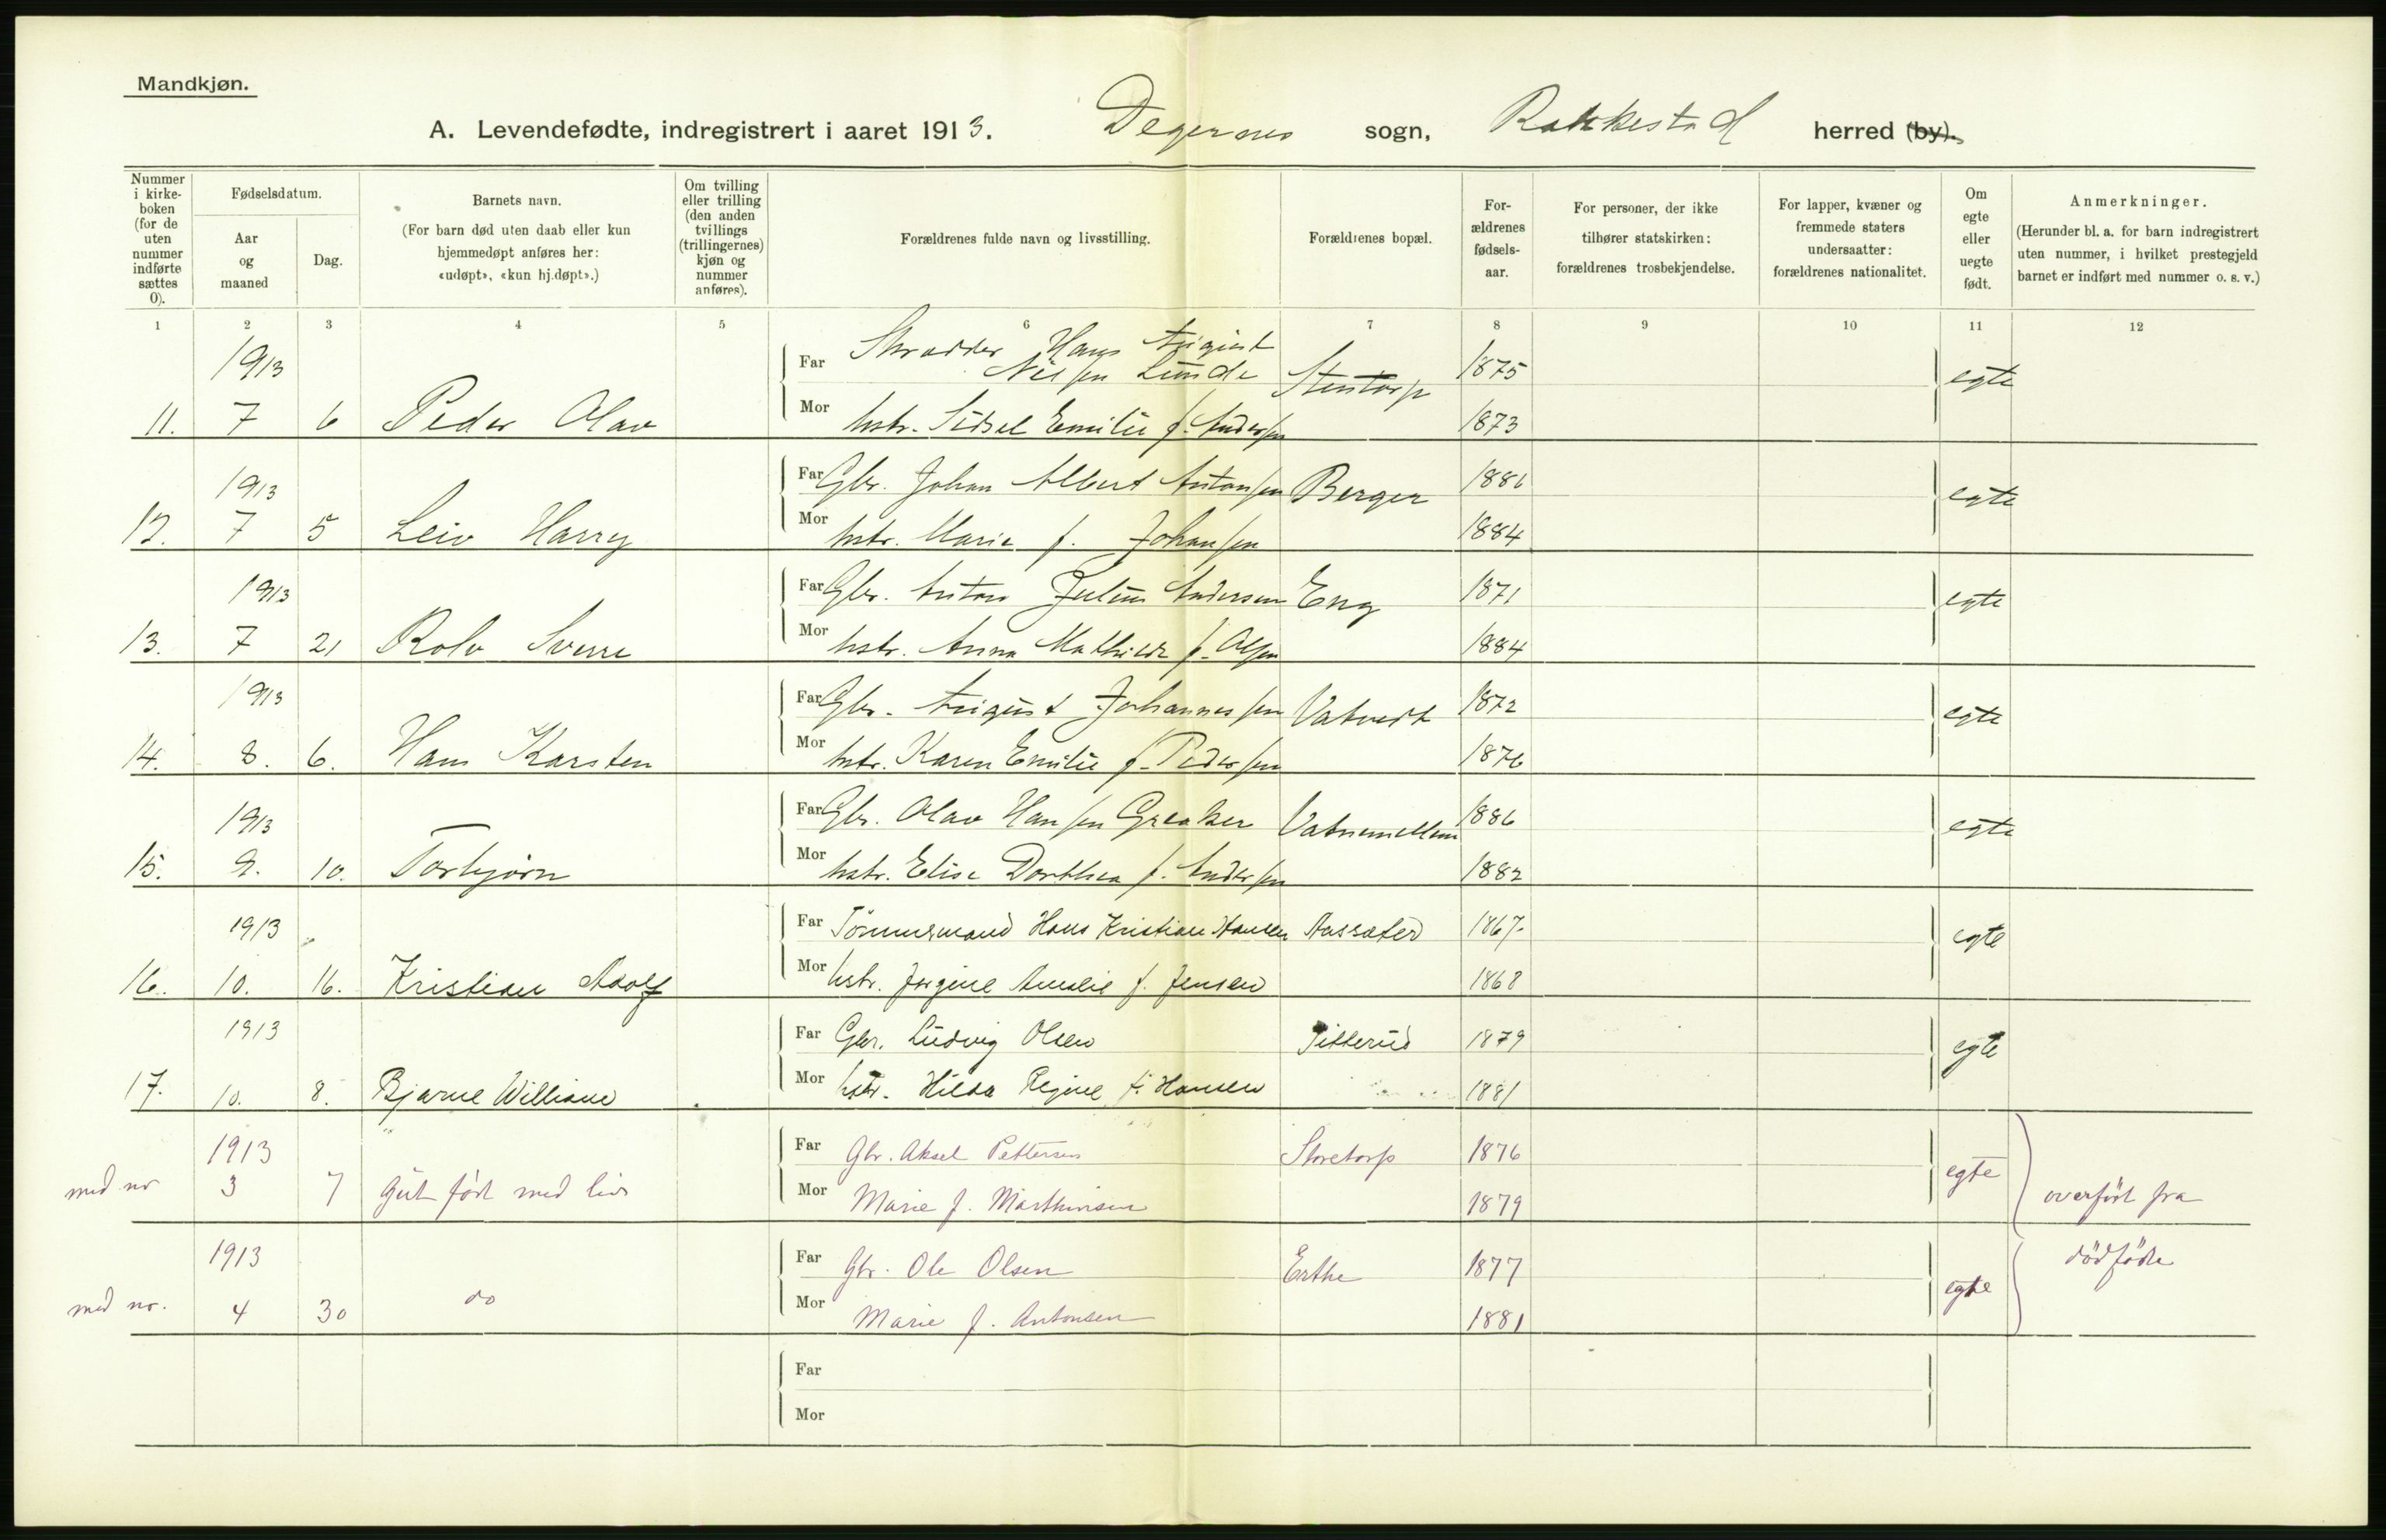 Mandkjøn.
A. Levendefødte, indregistrert i aaret 1913. Degernes sogn, Rakkestad herred (by).
Nummer i kirkeboken (for de uten nummer indførte sættes 0).
Fødselsdatum.
Aar og maaned
Dag.
Barnets navn.
(For barn død uten daab eller kun hjemmedøpt anføres her: «udøpt», «kun hj.døpt».)
Om tvilling eller trilling (den anden tvillings (trillingernes) kjøn og nummer anføres).
Forældrenes fulde navn og livsstilling.
Forældrenes bopæl.
Forældrenes fødselsaar.
For personer, der ikke tilhører statskirken: forældrenes trosbekjendelse.
For lapper, kvæner og fremmede staters undersaatter: forældrenes nationalitet.
Om egte eller uegte født.
Anmerkninger.
(Herunder bl. a. for barn indregistrert uten nummer, i hvilket prestegjeld barnet er indført med nummer o. s. v.)
1 2 3 4 5 6 7 8 9 10 11 12
1913 Far Skrædder Hans August Nilsen Lunde Stentorp 1875 egte
11. 7 6 Peder Olav Mor hstr. Sidsel Emilie f. Andersen 1873
1913 Far Gbr. Johan Albert Antonsen Berger 1881 egte
12. 7 5 Leiv Harry Mor hstr. Marie f. Johansen 1884
1913 Far Gbr. Anton Julius Andersen Eng 1871 egte
13. 7 21 Rolv Sverre Mor hstr. Anna Mathilde f. Olsen 1884
1913 Far Gbr. August Johannessen Vatvedt 1872 egte
14. 8. 6. Hans Karsten Mor hstr. Karen Emilie f. Pedersen 1876
1913 Far Gbr. Olav Hansen Greaker 1886 egte
15. 9. 10. Torbjørn Mor hstr. Elise Dorthea f. Andersen 1882
1913 Far Tömmermand Hans Kristian Hansen Aassæter 1867. egte
16. 10. 16. Kristian Adolf Mor hstr. Jørgine Amalie f. Jensen 1868
1913 Far Gbr. Ludvig Olsen Titterud 1879 egte
17. 10. 8. Bjarne William Mor hstr. Hilda Regine f. Hansen 1881
1913 Far Gbr. Aksel Pettersen Storetorp 1876 egte
med nr 3 7 gut født med liv Mor Marie f. Marthinsen 1879 overført fra
1913 Far Gbr. Ole Olsen Erthe 1877 egte dödfödte
med nr. 4 30 do Mor Marie f. Antonsen 1881
Far
Mor